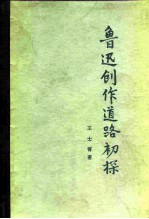 鲁迅创作道路初探
王士菁著